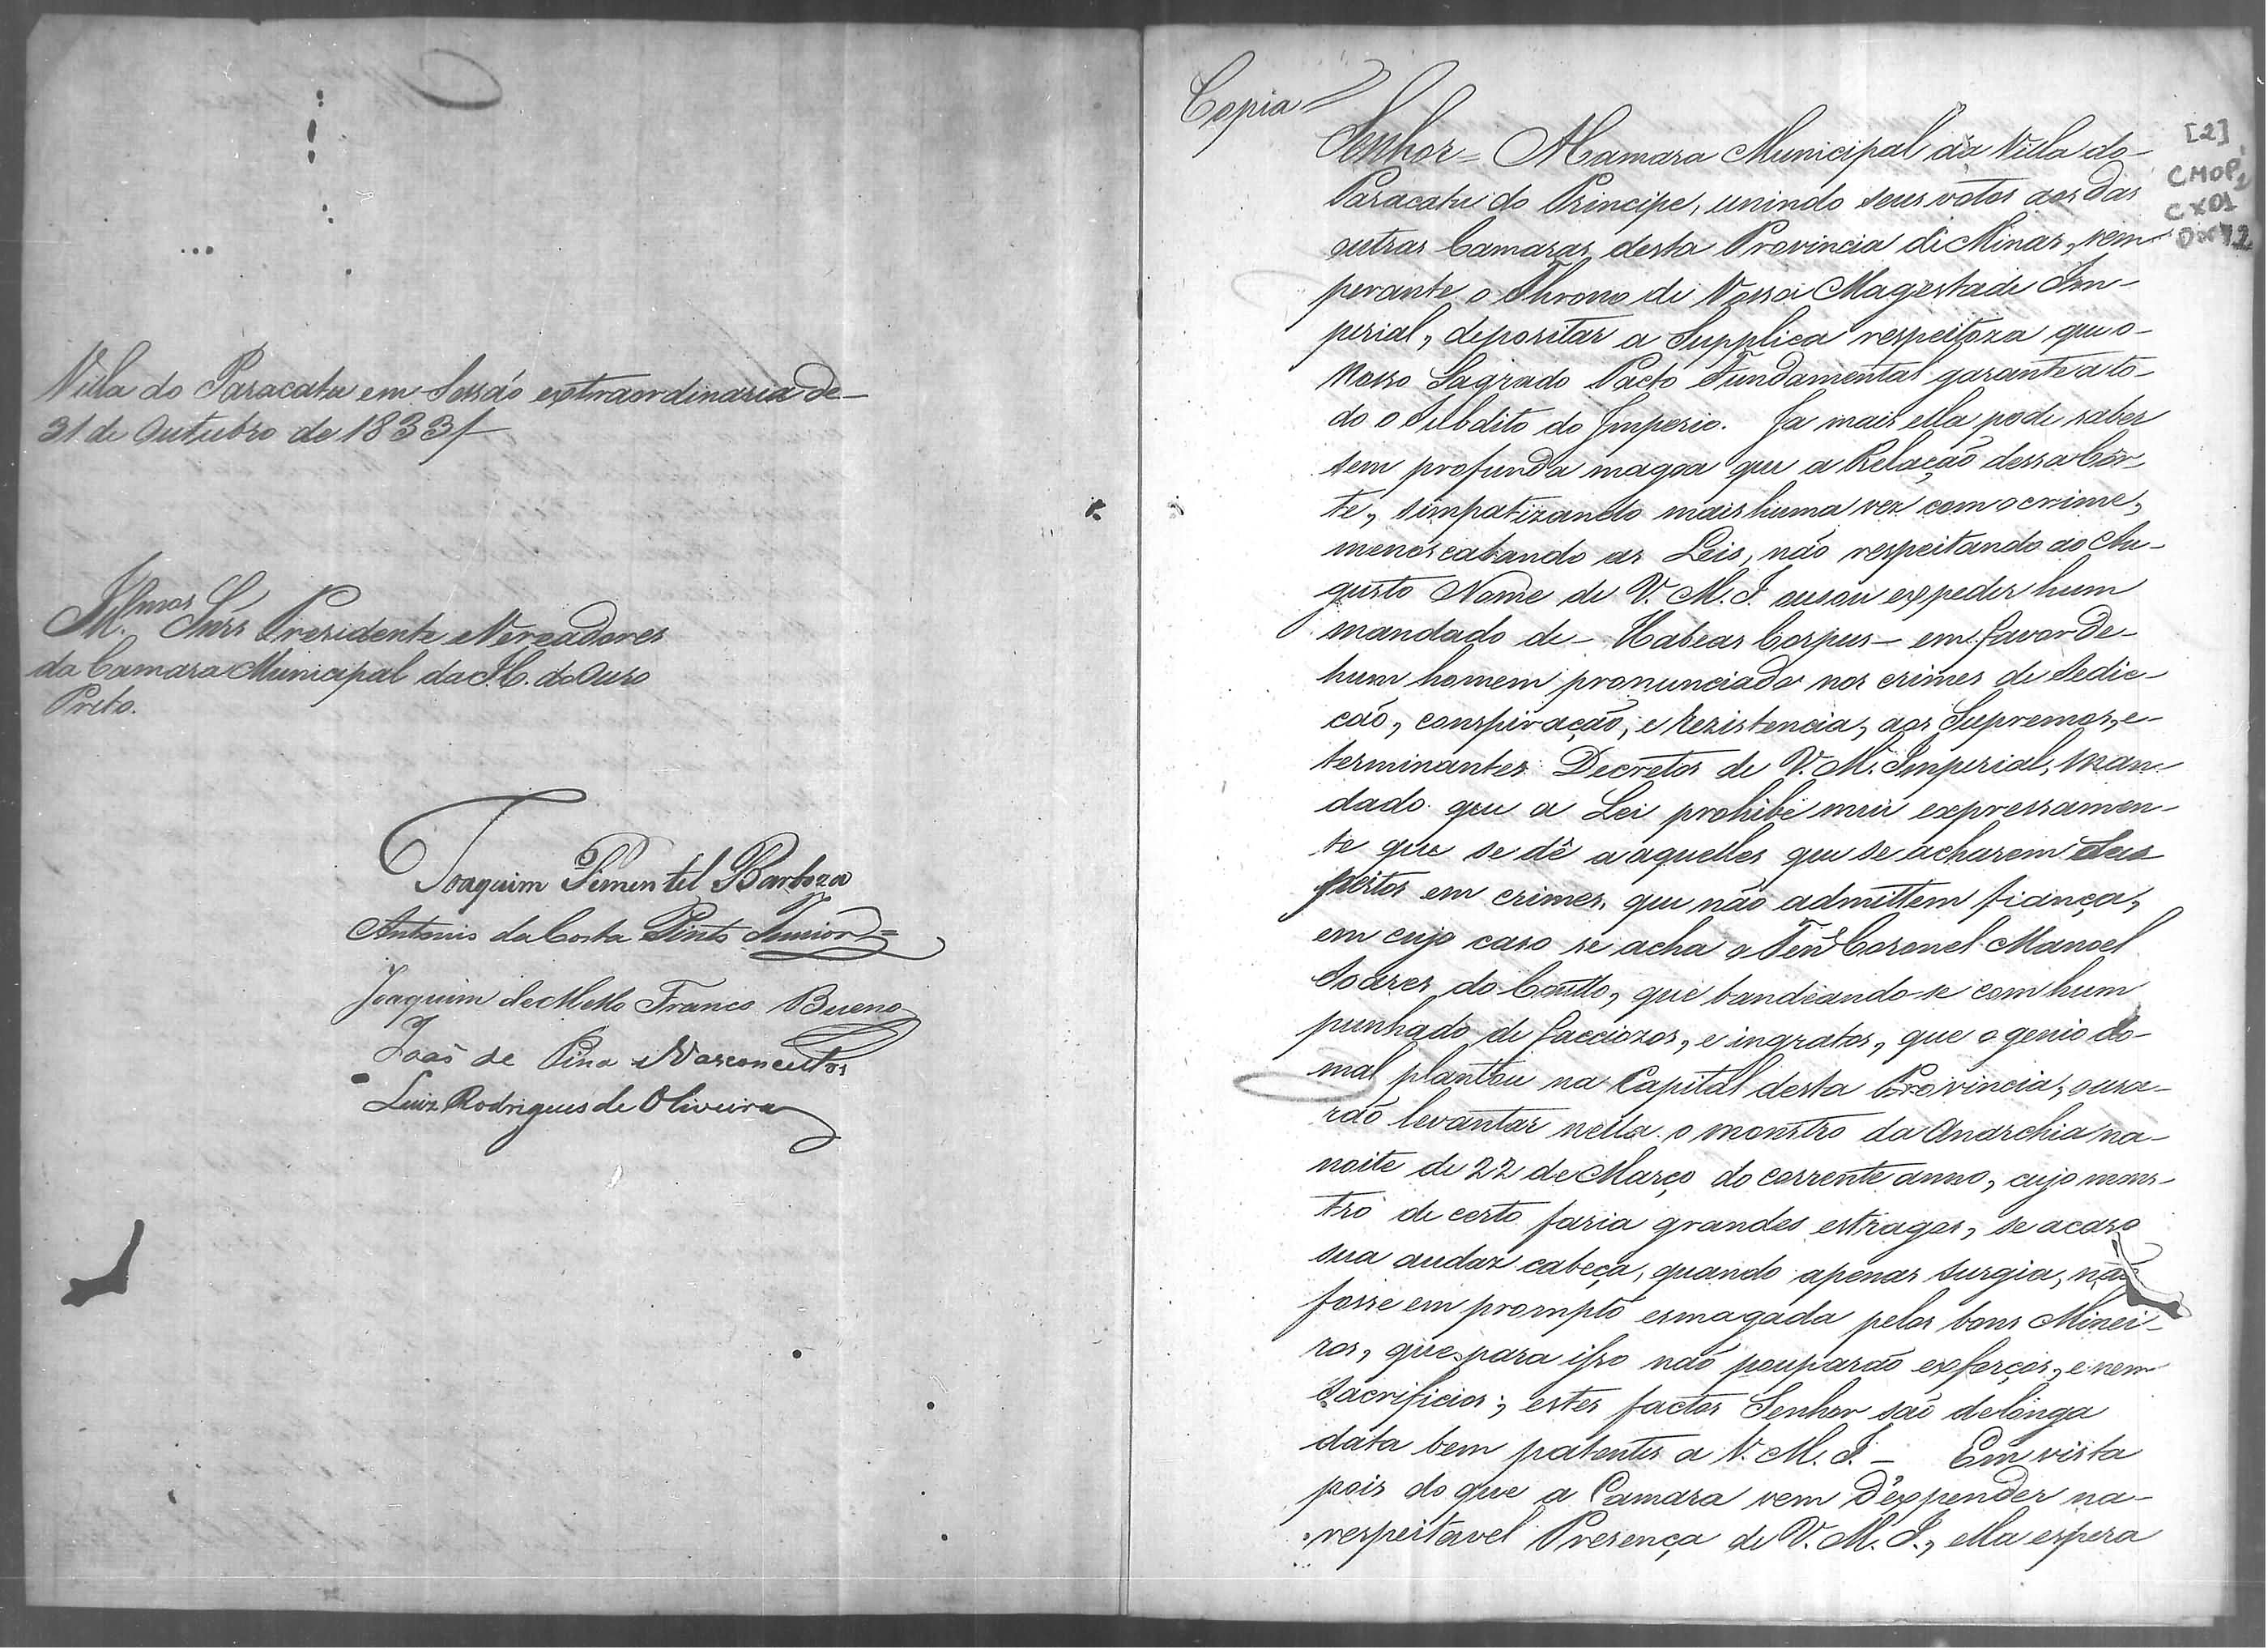 Villa do Paracatu em Sessão extraordinaria de
31 de Outubro de 1833
Ill.mos Snr.s Prezidente e Vereadores
da Camara Municipal da I. C. do Ouro
Preto.
Joaquim Pimentel Barboza
Antonio da Costa Pinto Junior
Joaquim de Mello Franco Bueno
João de Pina e Vasconcellos
Luiz Rodrigues de Oliveira
Copia
Senhor = A Camara Municipal da Villa do
Paracatu do Principe, unindo seus votos aos das
outras Camaras desta Provincia de Minas, vem
perante o Throno de Vossa Magestade Im-
perial, depositar a Supplica respeitoza que o
Nosso Sagrado Pacto Fundamental garante a to-
do o Subdito do Imperio. Ja mais ella pode saber
sem profunda magoa que a Relação dessa Cor-
te, simpatizando mais huma vez com o crime,
menoscabando as Leis, não respeitando ao Au-
gusto Nome de V. M. I. ousou expedir hum
mandado de - Habeas Corpus - em favor de
hum homem pronunciado nos crimes de Sedic-
cão, conspiração, e rezistencia, aos Supremos, e
terminantes Decretos de V. M. Imperial, Man-
dado que a Lei prohibe mui expressamen-
te que se dê a aquelles que se acharem Sus
peitos em crimes, que não admittem fiança,
em cujo caso se acha o Ten.e Coronel Manoel
Soares do Coutto, que bandeando-se com hum
punhado de facciozos, e ingratos, que o genio do
mal plantou na Capital desta Provincia, ousa-
rão levantar nella o monstro da Anarchia na
noite de 22 de Março do corrente anno, cujo mons-
tro de certo faria grandes estragos, se acazo
sua audaz cabeça, quando apenas surgia, não
fosse em prompto esmagada pelos bons Minei-
ros, que para isso não pouparão exforços, e nem
Sacrificios; estes factos Senhor são de longa
data bem patentes a V. M. I. - Em vista
pois do que a Camara vem d'expender na
respeitavel Presença de V. M. I., ella espera
[2]
CMOP
CX01